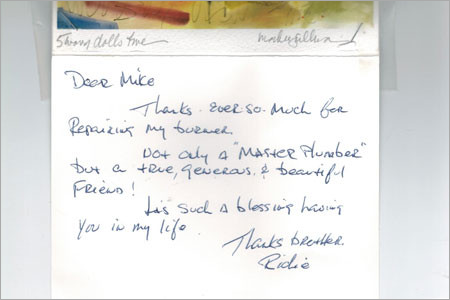 Dear Mike
Thanks. ever. so. much for
Repairing my burner.
Not only a "Master Plumber"
but a true, generous, & beautiful
Friend!
It's such a blessing having
you in my life.
Thanks brother.
Richie